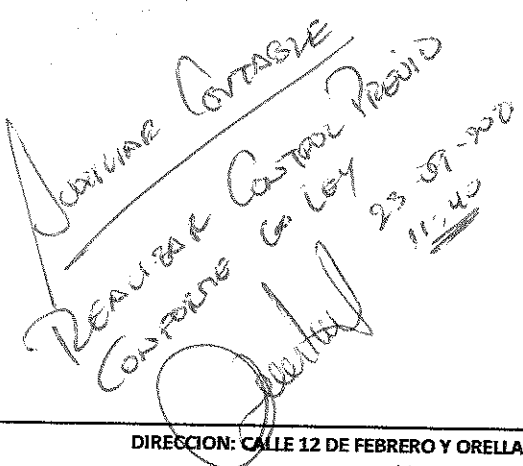 AUXILIAR CONTABLE
REALIZAR CONTROL PREVIO
CONFORME LEY
11:40
DIRECCION: CALLE 12 DE FEBRERO Y ORELLA